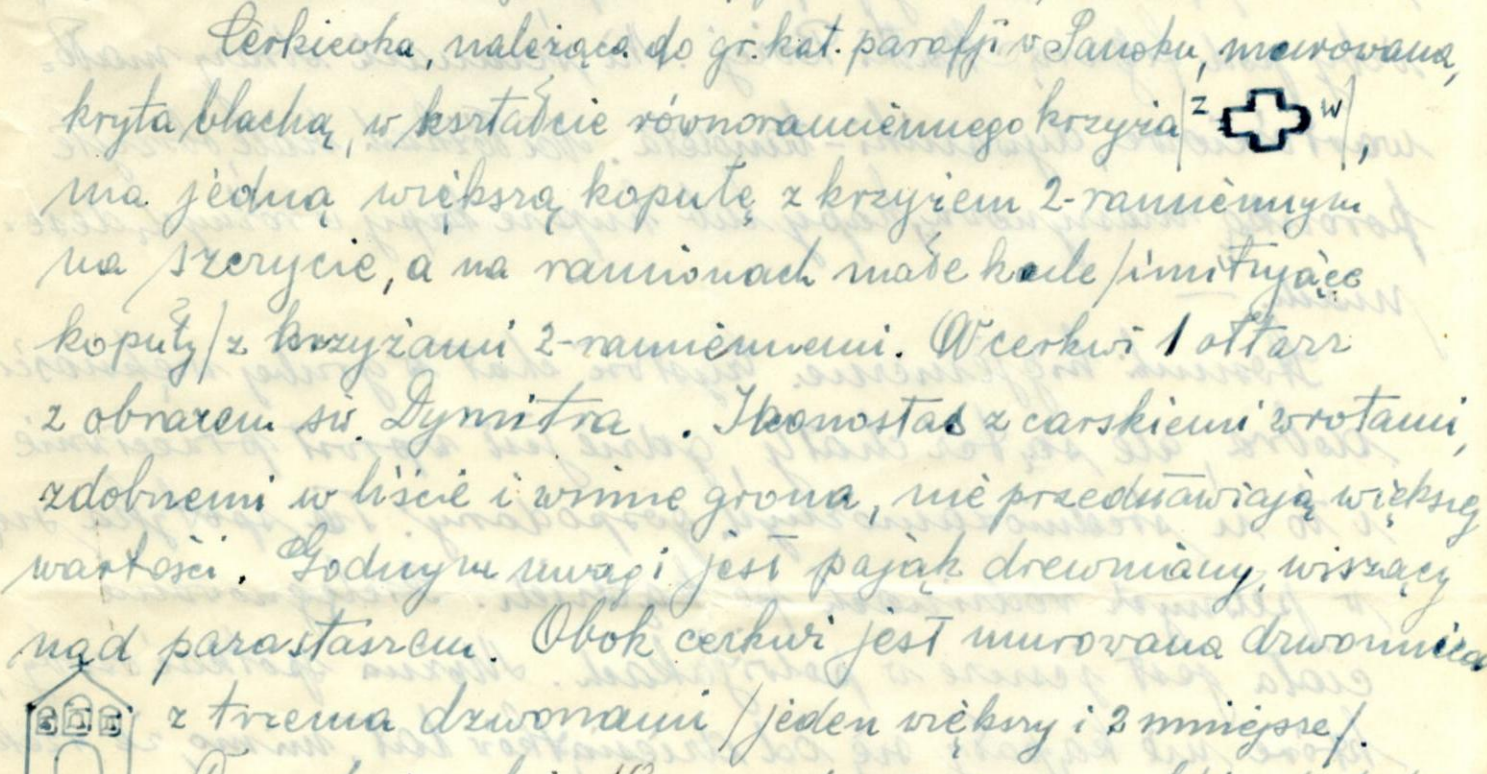 Cerkiewka, należąca do gr. kat. parafji w Sanoku, murowana,
kryta blachą, w kształcie równoramiennego krzyża / z w /,
ma jedną większą kopułę z krzyżem 2-ramiennym
na szczycie, a na ramionach małe kule /imitujące
kopuły/ z krzyżami 2-ramiennemi. W cerkwi 1 ołtarz
z obrazem św. Dymitra . Ikonostas z carskiemi wrotami,
zdobnemi w liście i winne grona, nie przedstawiają większej
wartości. Godnym uwagi jest pająk drewniany, wiszący
nad parastaszem. Obok cerkwi jest murowana dzwonnica
z trzema dzwonami /jeden większy i 2 mniejsze/.